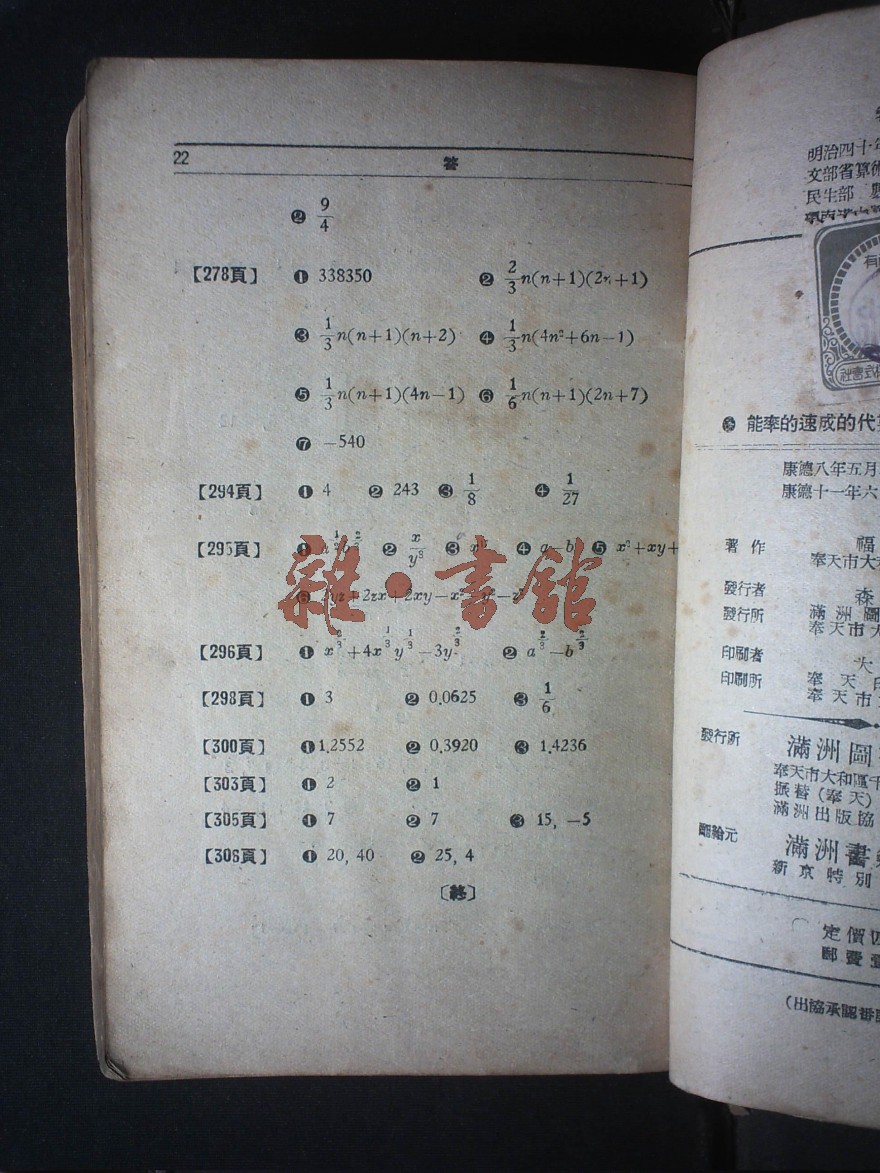 22
答
❷ 9/4
【278頁】 ❶ 338350 ❷ 2/3 n(n+1)(2n+1)
❸ 1/3 n(n+1)(n+2) ❹ 1/3 n(4n²+6n−1)
❺ 1/3 n(n+1)(4n−1) ❻ 1/6 n(n+1)(2n+7)
❼ −540
【294頁】 ❶ 4 ❷ 243 ❸ 1/8 ❹ 1/27
【295頁】 ❶ ❷ ❸ ❹ a−b ❺ x²+xy+
2yz+2zx+2xy−x²−y²−z²
【296頁】 ❶ x^(2/3)+4x^(1/3)y^(1/3)−3y^(2/3) ❷ a^(2/3)−b^(2/3)
【298頁】 ❶ 3 ❷ 0.0625 ❸ 1/6
【300頁】 ❶ 1.2552 ❷ 0.3920 ❸ 1.4236
【303頁】 ❶ 2 ❷ 1
【305頁】 ❶ 7 ❷ 7 ❸ 15, −5
【306頁】 ❶ 20, 40 ❷ 25, 4
〔終〕
雜·書館
明治四十年
文部省算術
民生部
能率的速成的代
康德八年五月
康德十一年六
著作 福
奉天市大和
發行者 森
發行所 滿洲圖
奉天市大
印刷者 大
印刷所 奉天
奉天市
發行所 滿洲圖
奉天市大和區千
振替(奉天)
滿洲出版協
配給元 滿洲書
新京特別
定價
郵費
(出協承認番